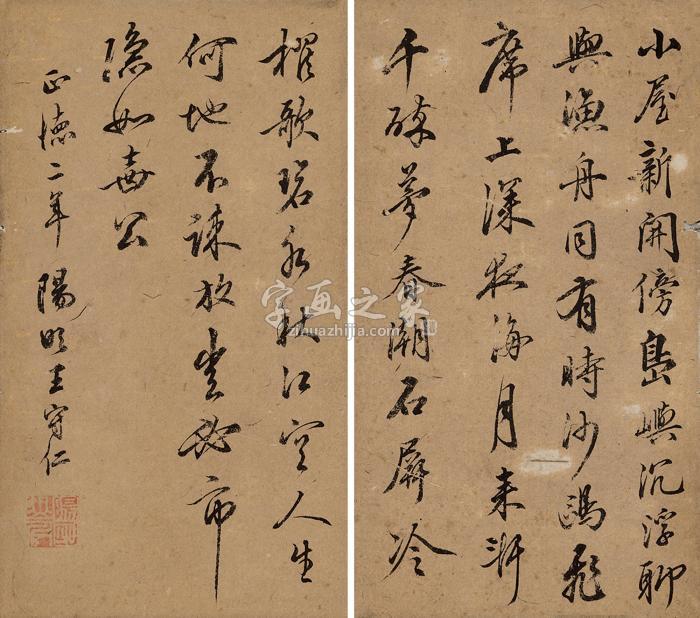 小屋新開傍島嶼沉浮聊
與漁舟同有時沙鷗飛
席上深夜海月來軒
中醉夢春潮石屏冷
櫂歌碧水秋江空人生
何地不疎放豈必市
隱如壺公
正德二年 陽明王守仁
字画之家
zihuazhijia.com